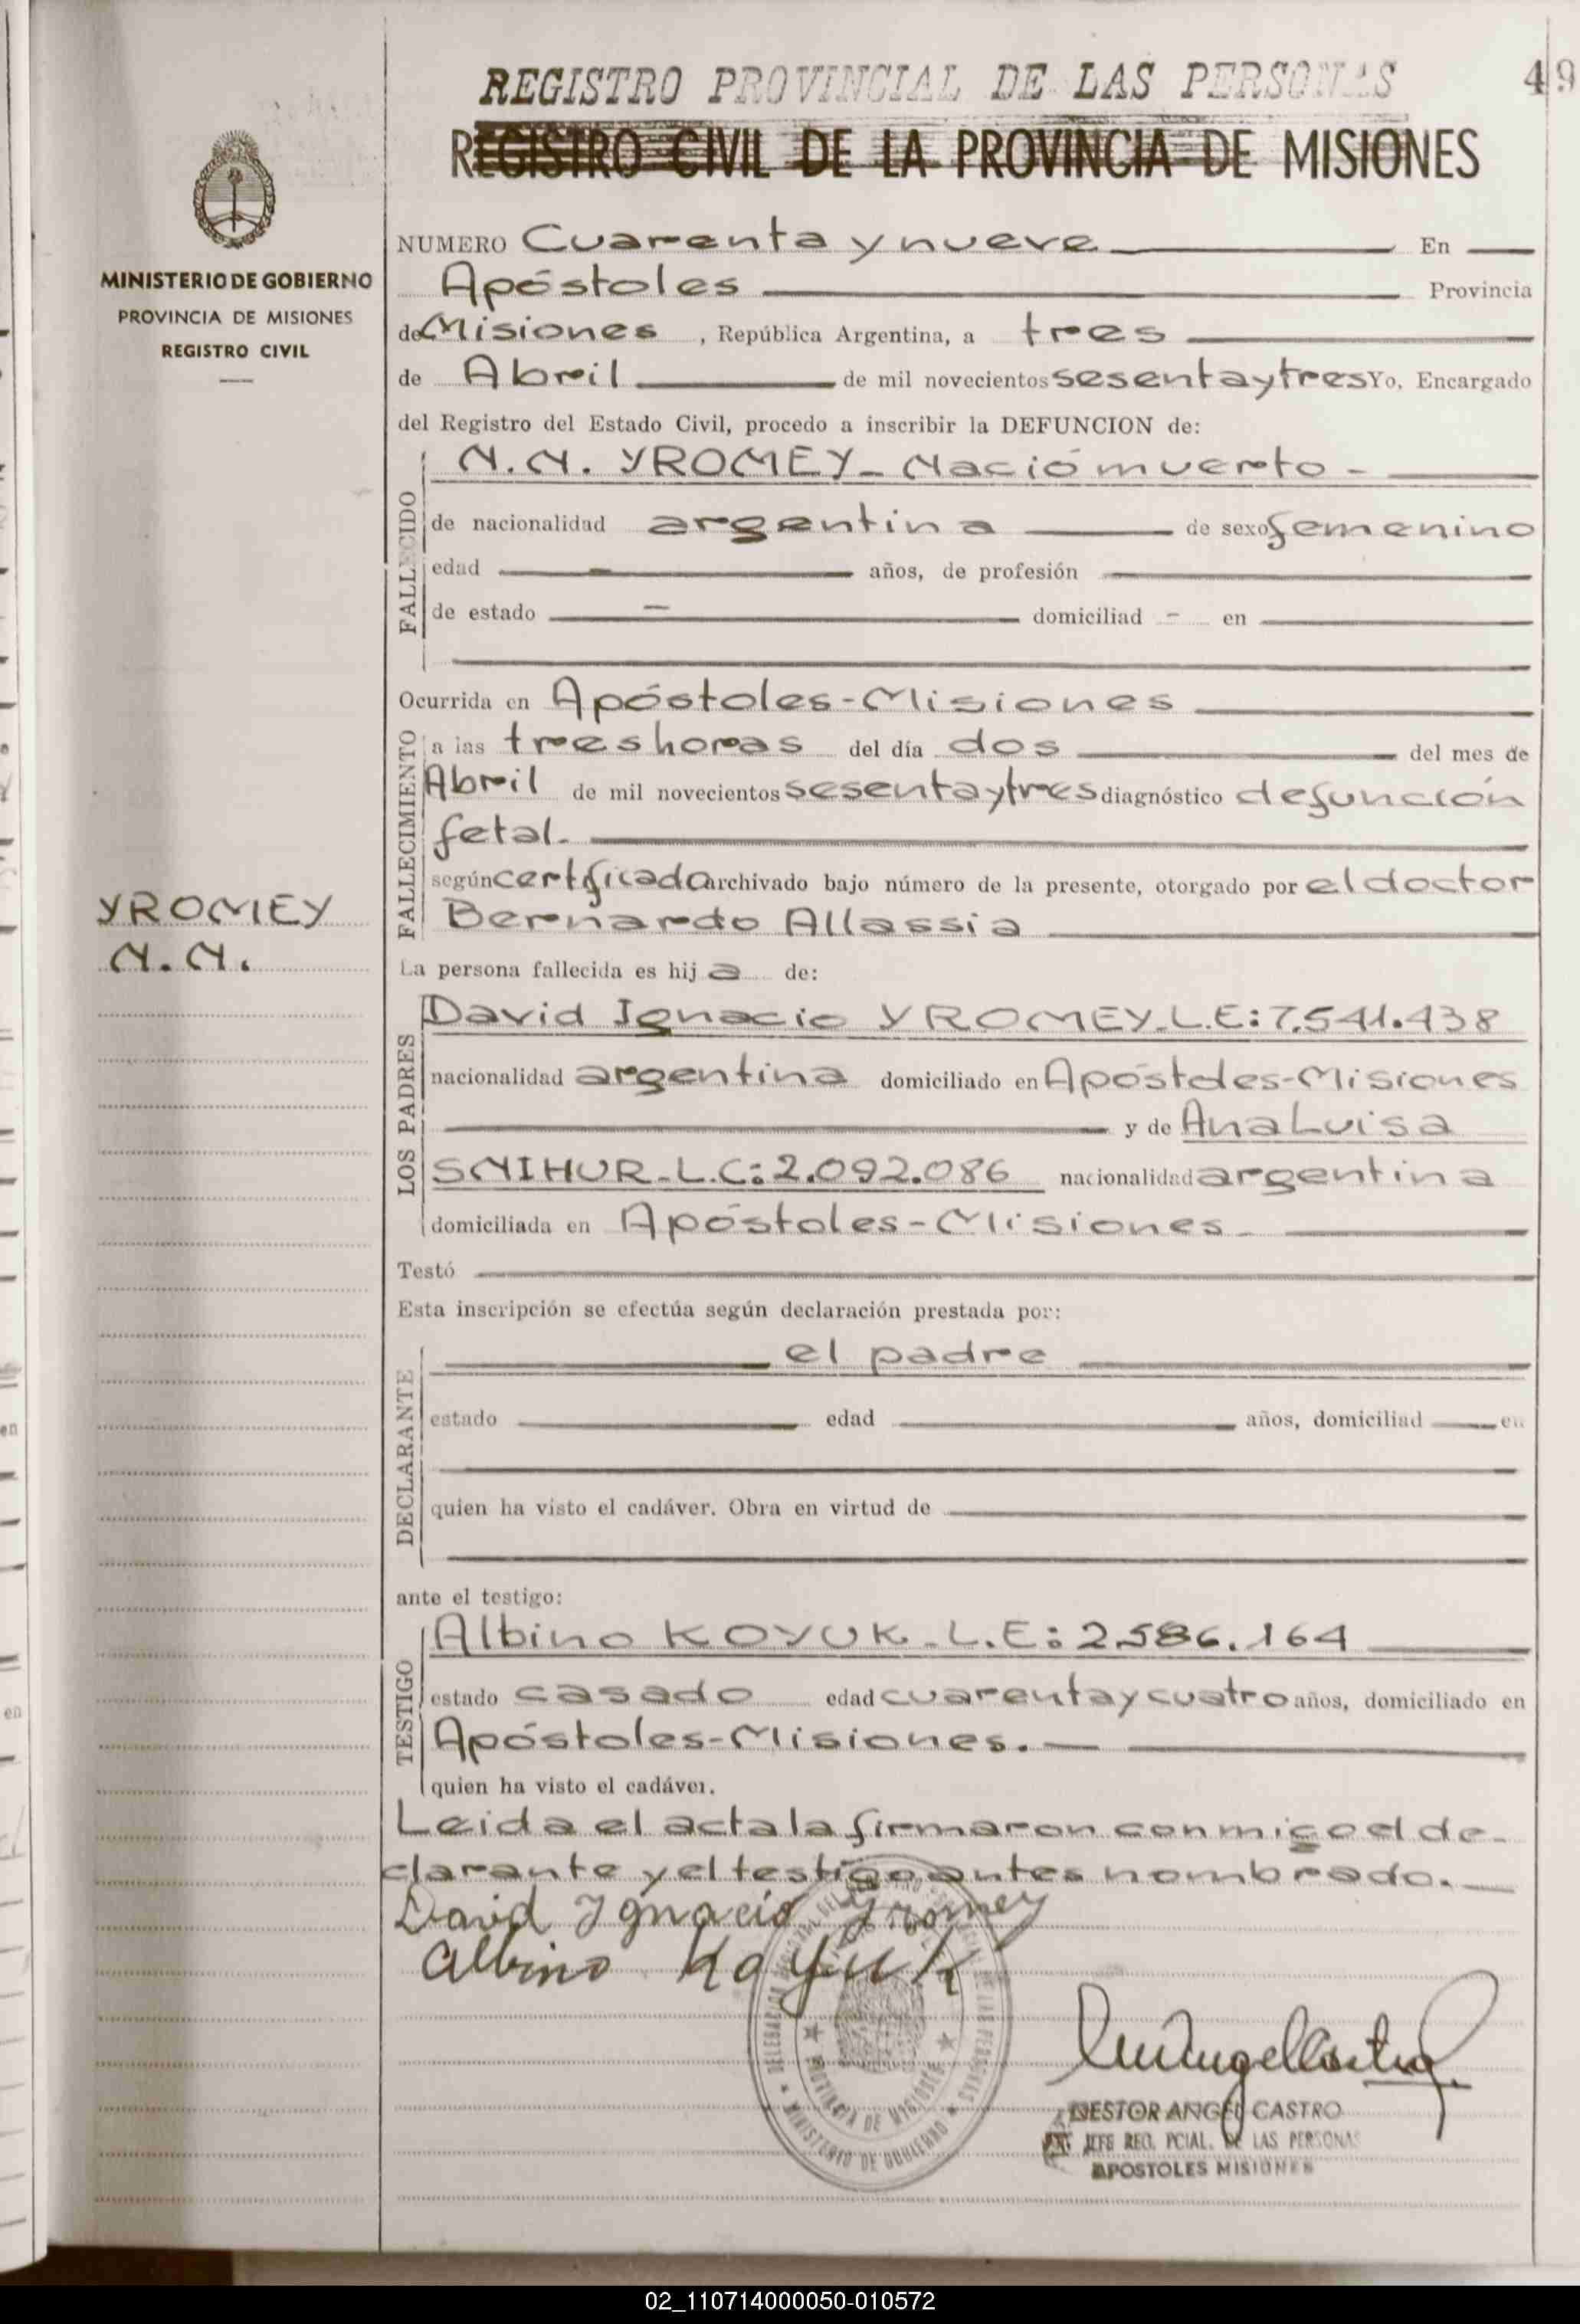 REGISTRO PROVINCIAL DE LAS PERSONAS
49
REGISTRO CIVIL DE LA PROVINCIA DE MISIONES
MINISTERIO DE GOBIERNO
PROVINCIA DE MISIONES
REGISTRO CIVIL
NUMERO Cuarenta y nueve En
Apóstoles Provincia
de Misiones , República Argentina, a tres
de Abril de mil novecientos sesenta y tres Yo, Encargado
del Registro del Estado Civil, procedo a inscribir la DEFUNCION de:
FALLECIDO
N.N. YROMEY - Nació muerto -
de nacionalidad argentina de sexo femenino
edad - años, de profesión
de estado - domiciliad - en
Ocurrida en Apóstoles - Misiones
FALLECIMIENTO
a las tres horas del día dos del mes de
Abril de mil novecientos sesenta y tres diagnóstico defunción
fetal.
según certificado archivado bajo número de la presente, otorgado por el doctor
Bernardo Allassia
YROMEY
N.N.
La persona fallecida es hij a de:
LOS PADRES
David Ignacio YROMEY. L.E: 7.541.438
nacionalidad argentina domiciliado en Apóstoles - Misiones
y de Ana Luisa
SNIHUR - L.C: 2.092.086 nacionalidad argentina
domiciliada en Apóstoles - Misiones
Testó
Esta inscripción se efectúa según declaración prestada por:
DECLARANTE
el padre
estado edad años, domiciliad en
quien ha visto el cadáver. Obra en virtud de
ante el testigo:
TESTIGO
Albino KOYUK - L.E: 2.586.164
estado casado edad cuarenta y cuatro años, domiciliado en
Apóstoles - Misiones.
quien ha visto el cadáver.
Leida el acta la firmaron conmigo el de-
clarante y el testigo antes nombrado.
David Ignacio Yromey
Albino Koyuk
PROVINCIA DE MISIONES
MINISTERIO DE GOBIERNO
NESTOR ANGEL CASTRO
JEFE REG. PCIAL. DE LAS PERSONAS
APOSTOLES MISIONES
02_110714000050-010572